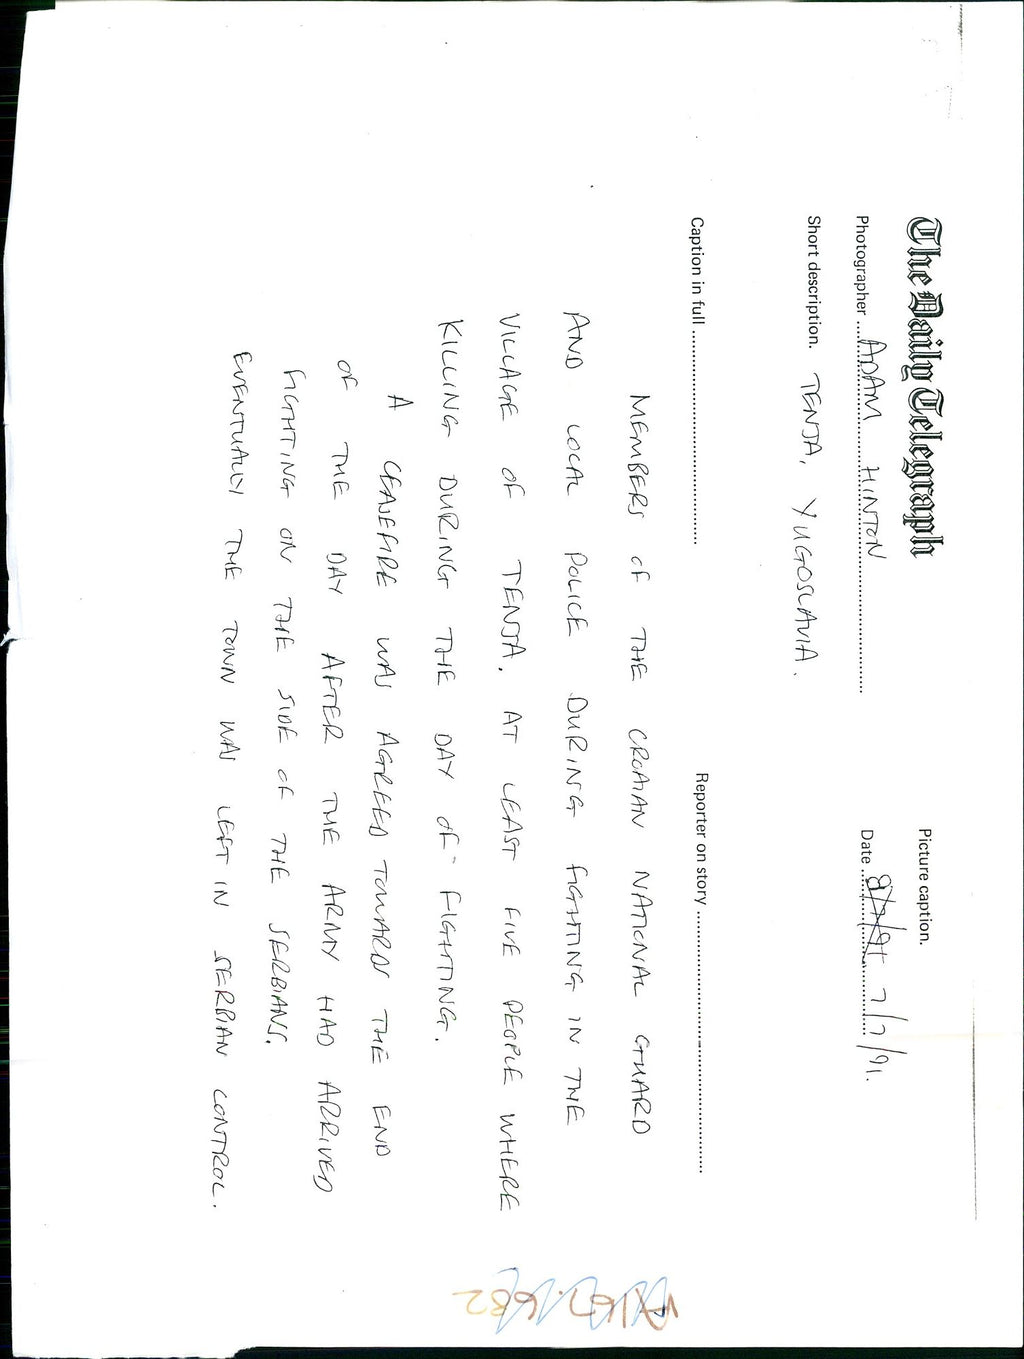 The Daily Telegraph
Picture caption.
Photographer ADAM HINTON
Date 8/7/91 7/7/91.
Short description. TENJA, YUGOSLAVIA.
Caption in full
Reporter on story
MEMBERS OF THE CROATIAN NATIONAL GUARD
AND LOCAL POLICE DURING FIGHTING IN THE
VILLAGE OF TENJA. AT LEAST FIVE PEOPLE WHERE
KILLING DURING THE DAY OF FIGHTING.
A CEASEFIRE WAS AGREED TOWARDS THE END
OF THE DAY AFTER THE ARMY HAD ARRIVED
FIGHTING ON THE SIDE OF THE SERBIANS.
EVENTUALLY THE TOWN WAS LEFT IN SERBIAN CONTROL.